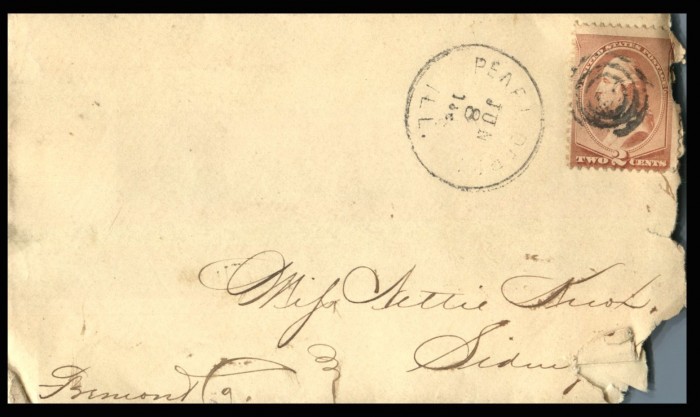 PEARL
JUN
8
ILL.
UNITED STATES POSTAGE
TWO 2 CENTS
Miss Nettie
Sidney
Fremont